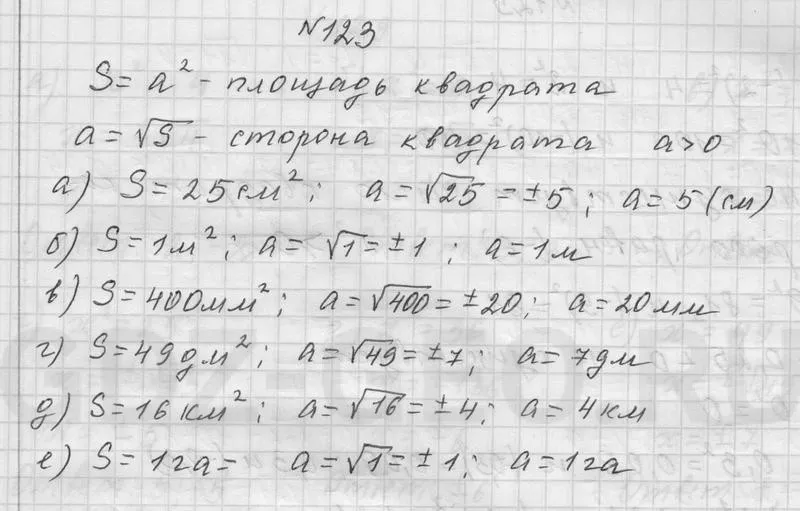 №123
S = a² - площадь квадрата
a = √S - сторона квадрата a > 0
а) S = 25 см²; a = √25 = ±5; a = 5 (см)
б) S = 1 м²; a = √1 = ±1; a = 1 м
в) S = 400 мм²; a = √400 = ±20; a = 20 мм
г) S = 49 дм²; a = √49 = ±7; a = 7 дм
д) S = 16 км²; a = √16 = ±4; a = 4 км
е) S = 1 га = a = √1 = ±1; a = 1 га